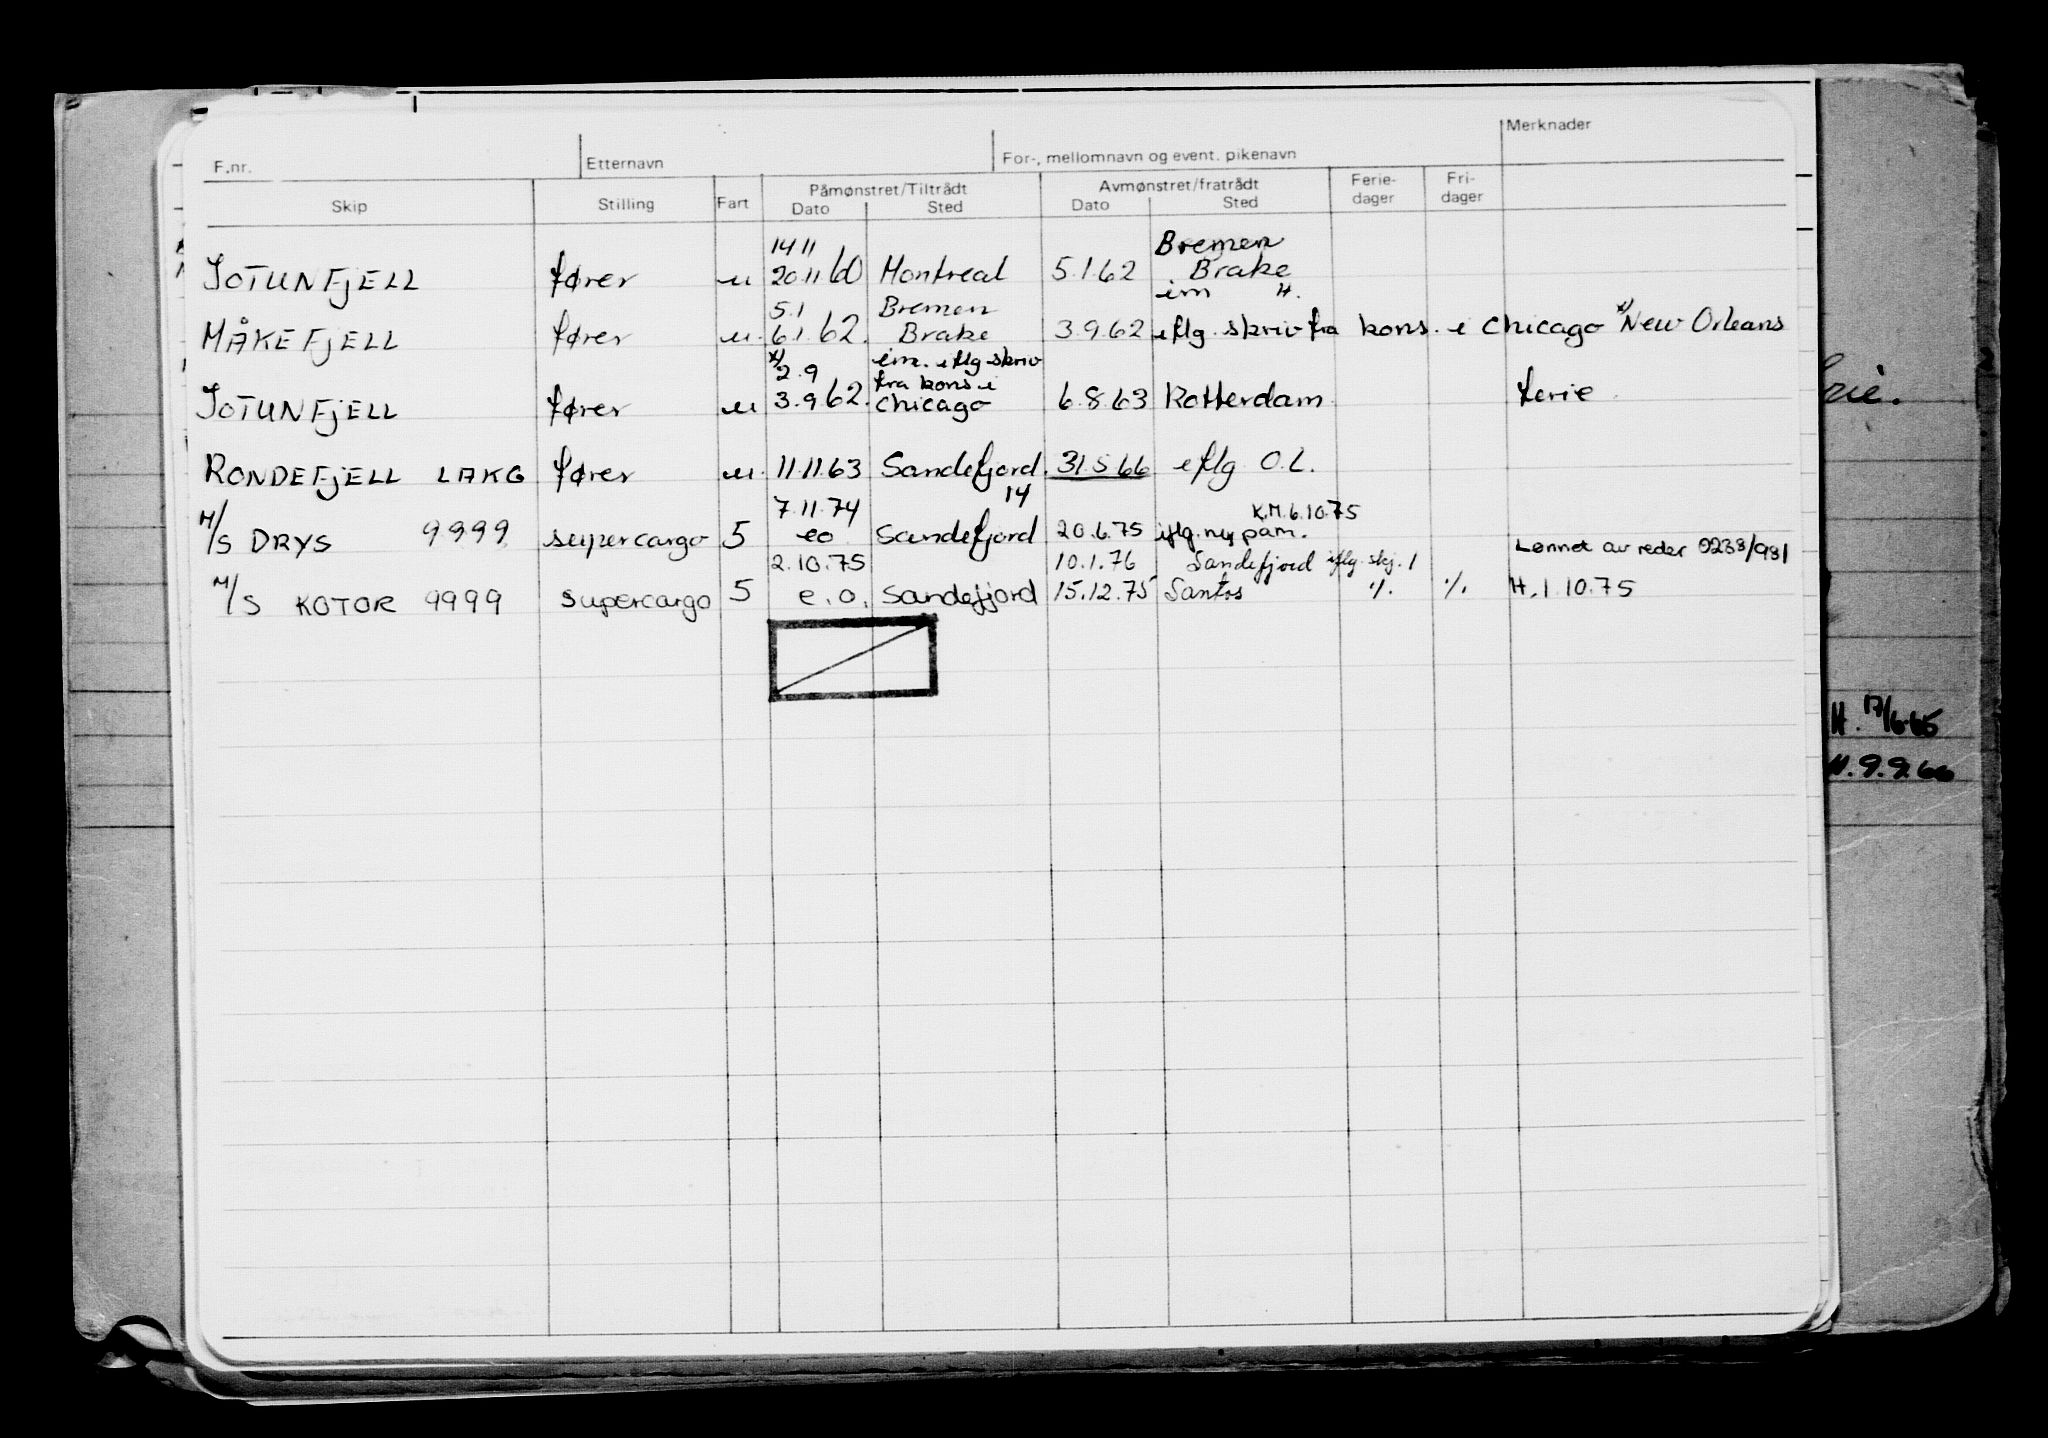 Merknader
F.nr. Etternavn For-, mellomnavn og event. pikenavn
Påmønstret/Tiltrådt Avmønstret/fratrådt Ferie- Fri-
Skip Stilling Fart Dato Sted Dato Sted dager dager
14 11 Bremen
JOTUNFJELL fører u 20.11.60 Montreal 5.1.62 Brake
im H.
5.1 Bremen
MÅKEFJELL fører u. 6.1.62. Brake 3.9.62 eflg. skriv fra kons. i Chicago x/ New Orleans
x/ 2.9 im. eflg skriv
fra kons i
JOTUNFJELL fører u 3.9.62. Chicago 6.8.63 Rotterdam ferie
RONDEFJELL LAKG fører u. 11.11.63 Sandefjord. 31.5.66 eflg. O.L.
7.11.74 14 K.M. 6.10.75
M/S DRYS 9999 supercargo 5 eo Sandefjord 20.6.75 iflg. ny påm.
Lønnet av reder 0238/981
2.10.75 10.1.76 Sandefjord iflg. skj. 1
M/S KOTOR 9999 supercargo 5 e.o. Sandefjord 15.12.75 Santos ./. ./. H. 1.10.75
H. 17/6.65
H. 9.9.66